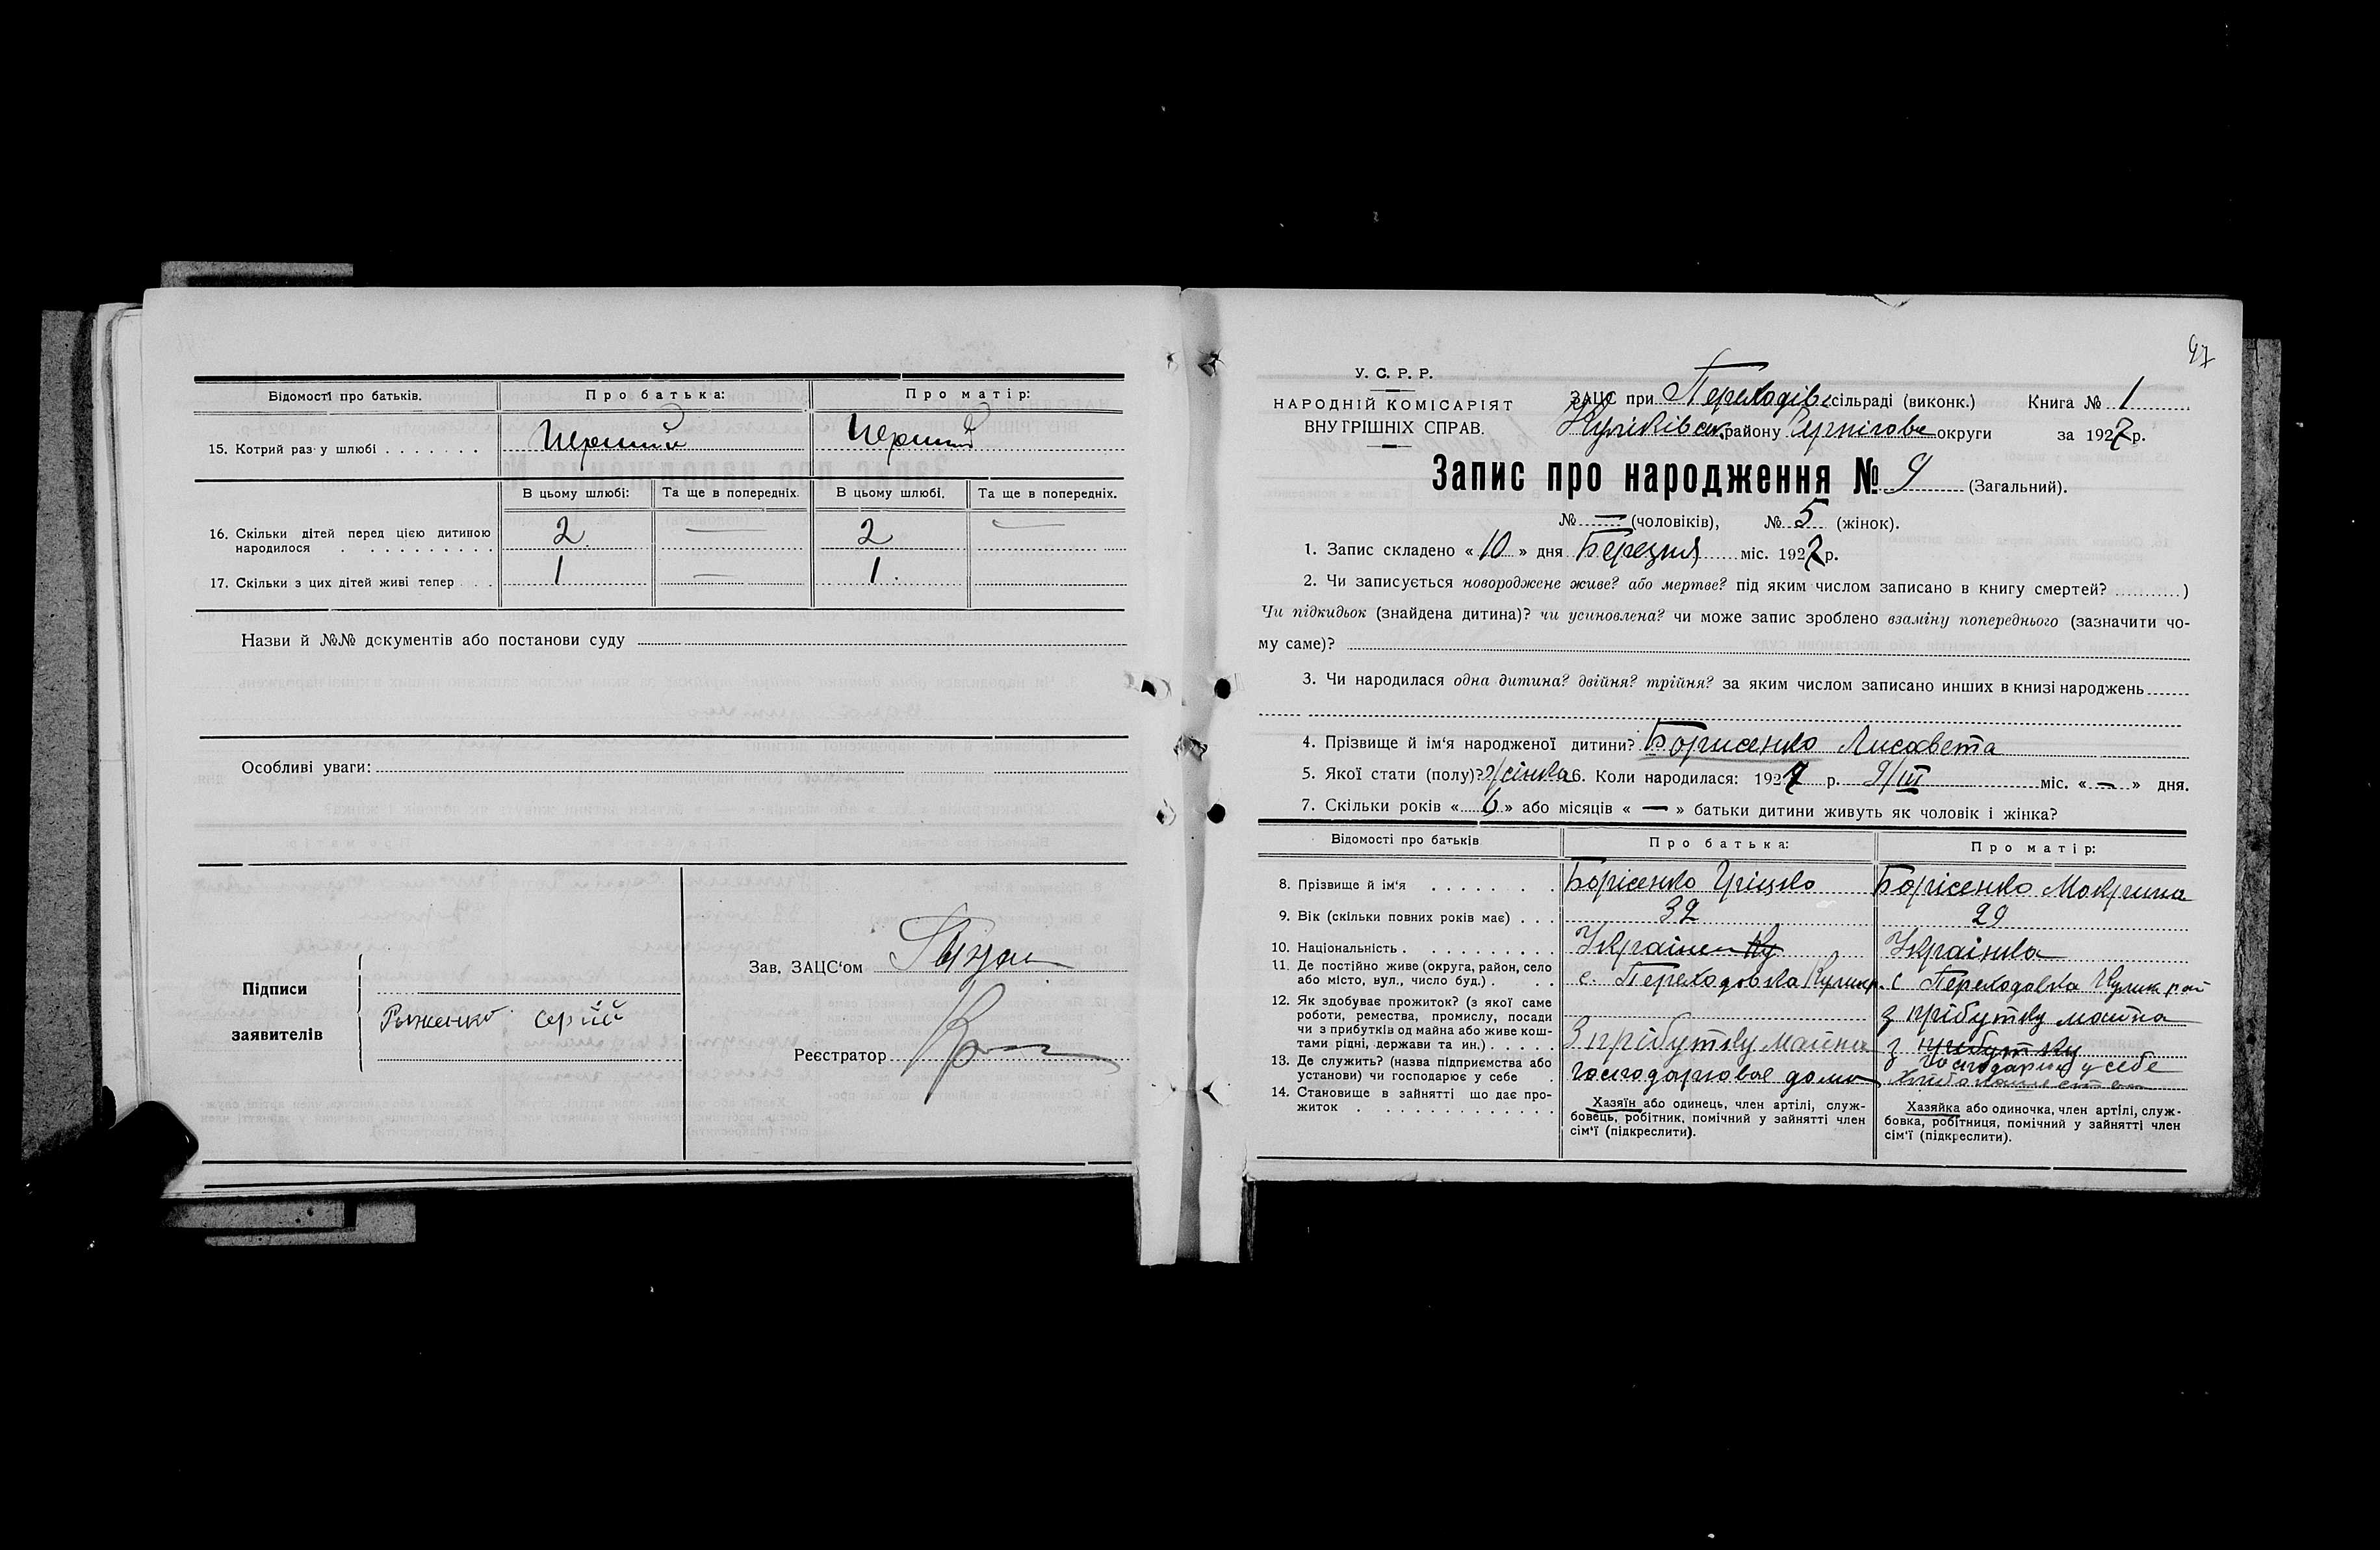 Відомості про батьків. Про батька: Про матір:
15. Котрий раз у шлюбі Перший Перший
В цьому шлюбі: Та ще в попередніх. В цьому шлюбі. Та ще в попередніх.
16. Скільки дітей перед цією дитиною 2 — 2 —
народилося
17. Скільки з цих дітей живі тепер 1 — 1.
Назви й №№ документів або постанови суду
Особливі уваги:
Зав. ЗАЦС'ом
Підписи
заявителів
Рыженко Сергій
Реєстратор
47
У. С. Р. Р.
НАРОДНІЙ КОМІСАРІЯТ
ВНУТРІШНІХ СПРАВ.
ЗАЦС при Переходівс сільраді (виконк.) Книга № 1
Куликівськ району Черніговс округи за 1927 р.
Запис про народження № 9 (Загальний).
№ — (чоловіків), № 5 (жінок).
1. Запис складено « 10 » дня Березня міс. 1927 р.
2. Чи записується новороджене живе? або мертве? під яким числом записано в книгу смертей? )
Чи підкидьок (знайдена дитина)? чи усиновлена? чи може запис зроблено взаміну попереднього (зазначити чо-
му саме)?
3. Чи народилася одна дитина? двійня? трійня? за яким числом записано инших в книзі народжень
4. Прізвище й ім'я народженої дитини? Борисенко Лисавета
5. Якої стати (полу)? жінка 6. Коли народилася: 1927 р. 9/III міс. « — » дня.
7. Скільки років « 6 » або місяців « — » батьки дитини живуть як чоловік і жінка?
Відомості про батьків Про батька: Про матір:
8. Прізвище й ім'я Борісенко Грішко Борісенко Мокрина
9. Вік (скільки повних років має) 32 29
10. Національність Українен ку Українка
11. Де постійно живе (округа, район, село с. Переходовка Кулик р. с Переходовка Кулик рай
або місто, вул., число буд.)
12. Як здобуває прожиток? (з якої саме з прібутку майна
роботи, ремества, промислу, посади
чи з прибутків од майна або живе кош-
тами рідні, держави та ин.) З прібутку майна з прібутку
13. Де служить? (назва підприємства або господарює у себе
установи) чи господарює у себе господарювае дома
14. Становище в зайнятті що дає про-
житок
Хазяїн або одинець, член артілі, служ-
бовець, робітник, помічний у зайнятті член
сім'ї (підкреслити).
Хазяйка або одиночка, член артілі, служ-
бовка, робітниця, помічний у зайнятті член
сім'ї (підкреслити).